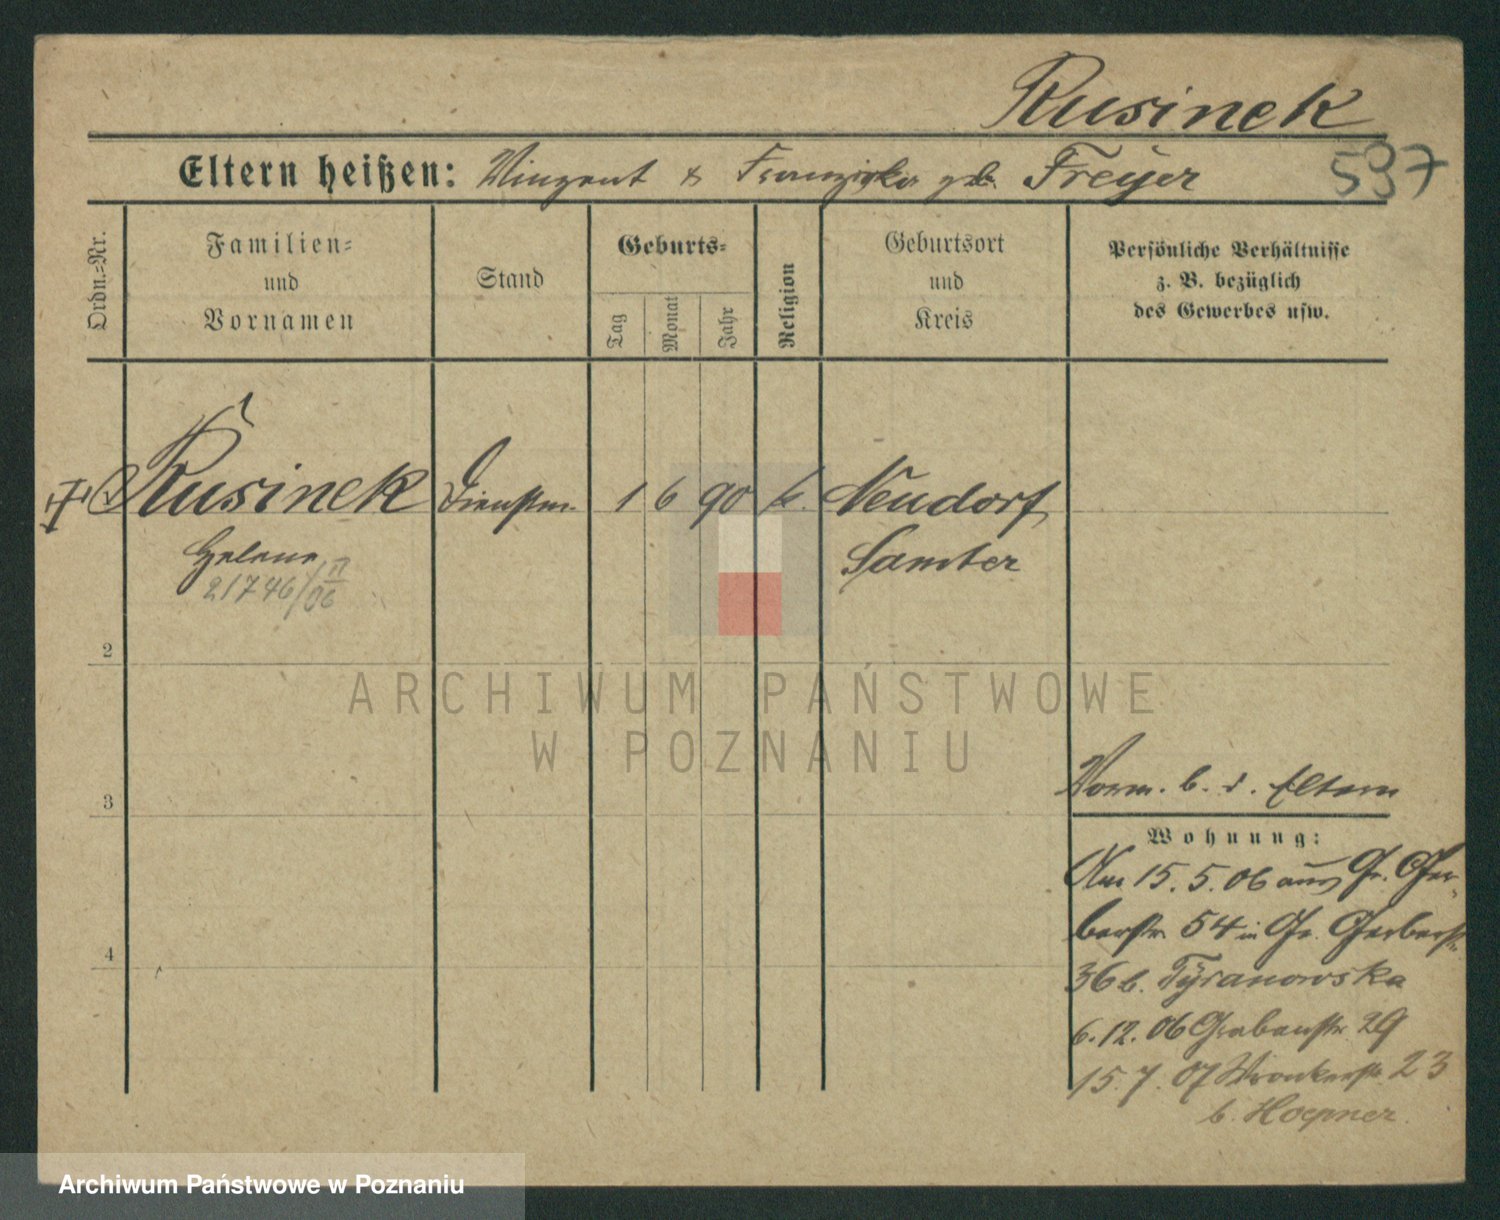 Rusinek
Eltern heißen: Vinzent & Franziska geb. Freÿer
537
Ordn.=Nr.
Familien=
und
Vornamen
Stand
Geburts=
Tag
Monat
Jahr
Religion
Geburtsort
und
Kreis
Persönliche Verhältnisse
z. B. bezüglich
des Gewerbes usw.
Rusinek Dienstm. 1 6 90 k. Neudorf
Helene Samter
21746/
06
2
ARCHIWUM PAŃSTWOWE
W POZNANIU
3
Vorm. b. d. Eltern
Wohnung:
Am 15.5.06 aus Gr. Ger-
berstr. 54 in Gr. Gerberstr.
4
36 b. Tÿranowska
6.12.06 Grabenstr. 29
15.7.07 Wronkerstr. 23
b. Hoepner.
Archiwum Państwowe w Poznaniu